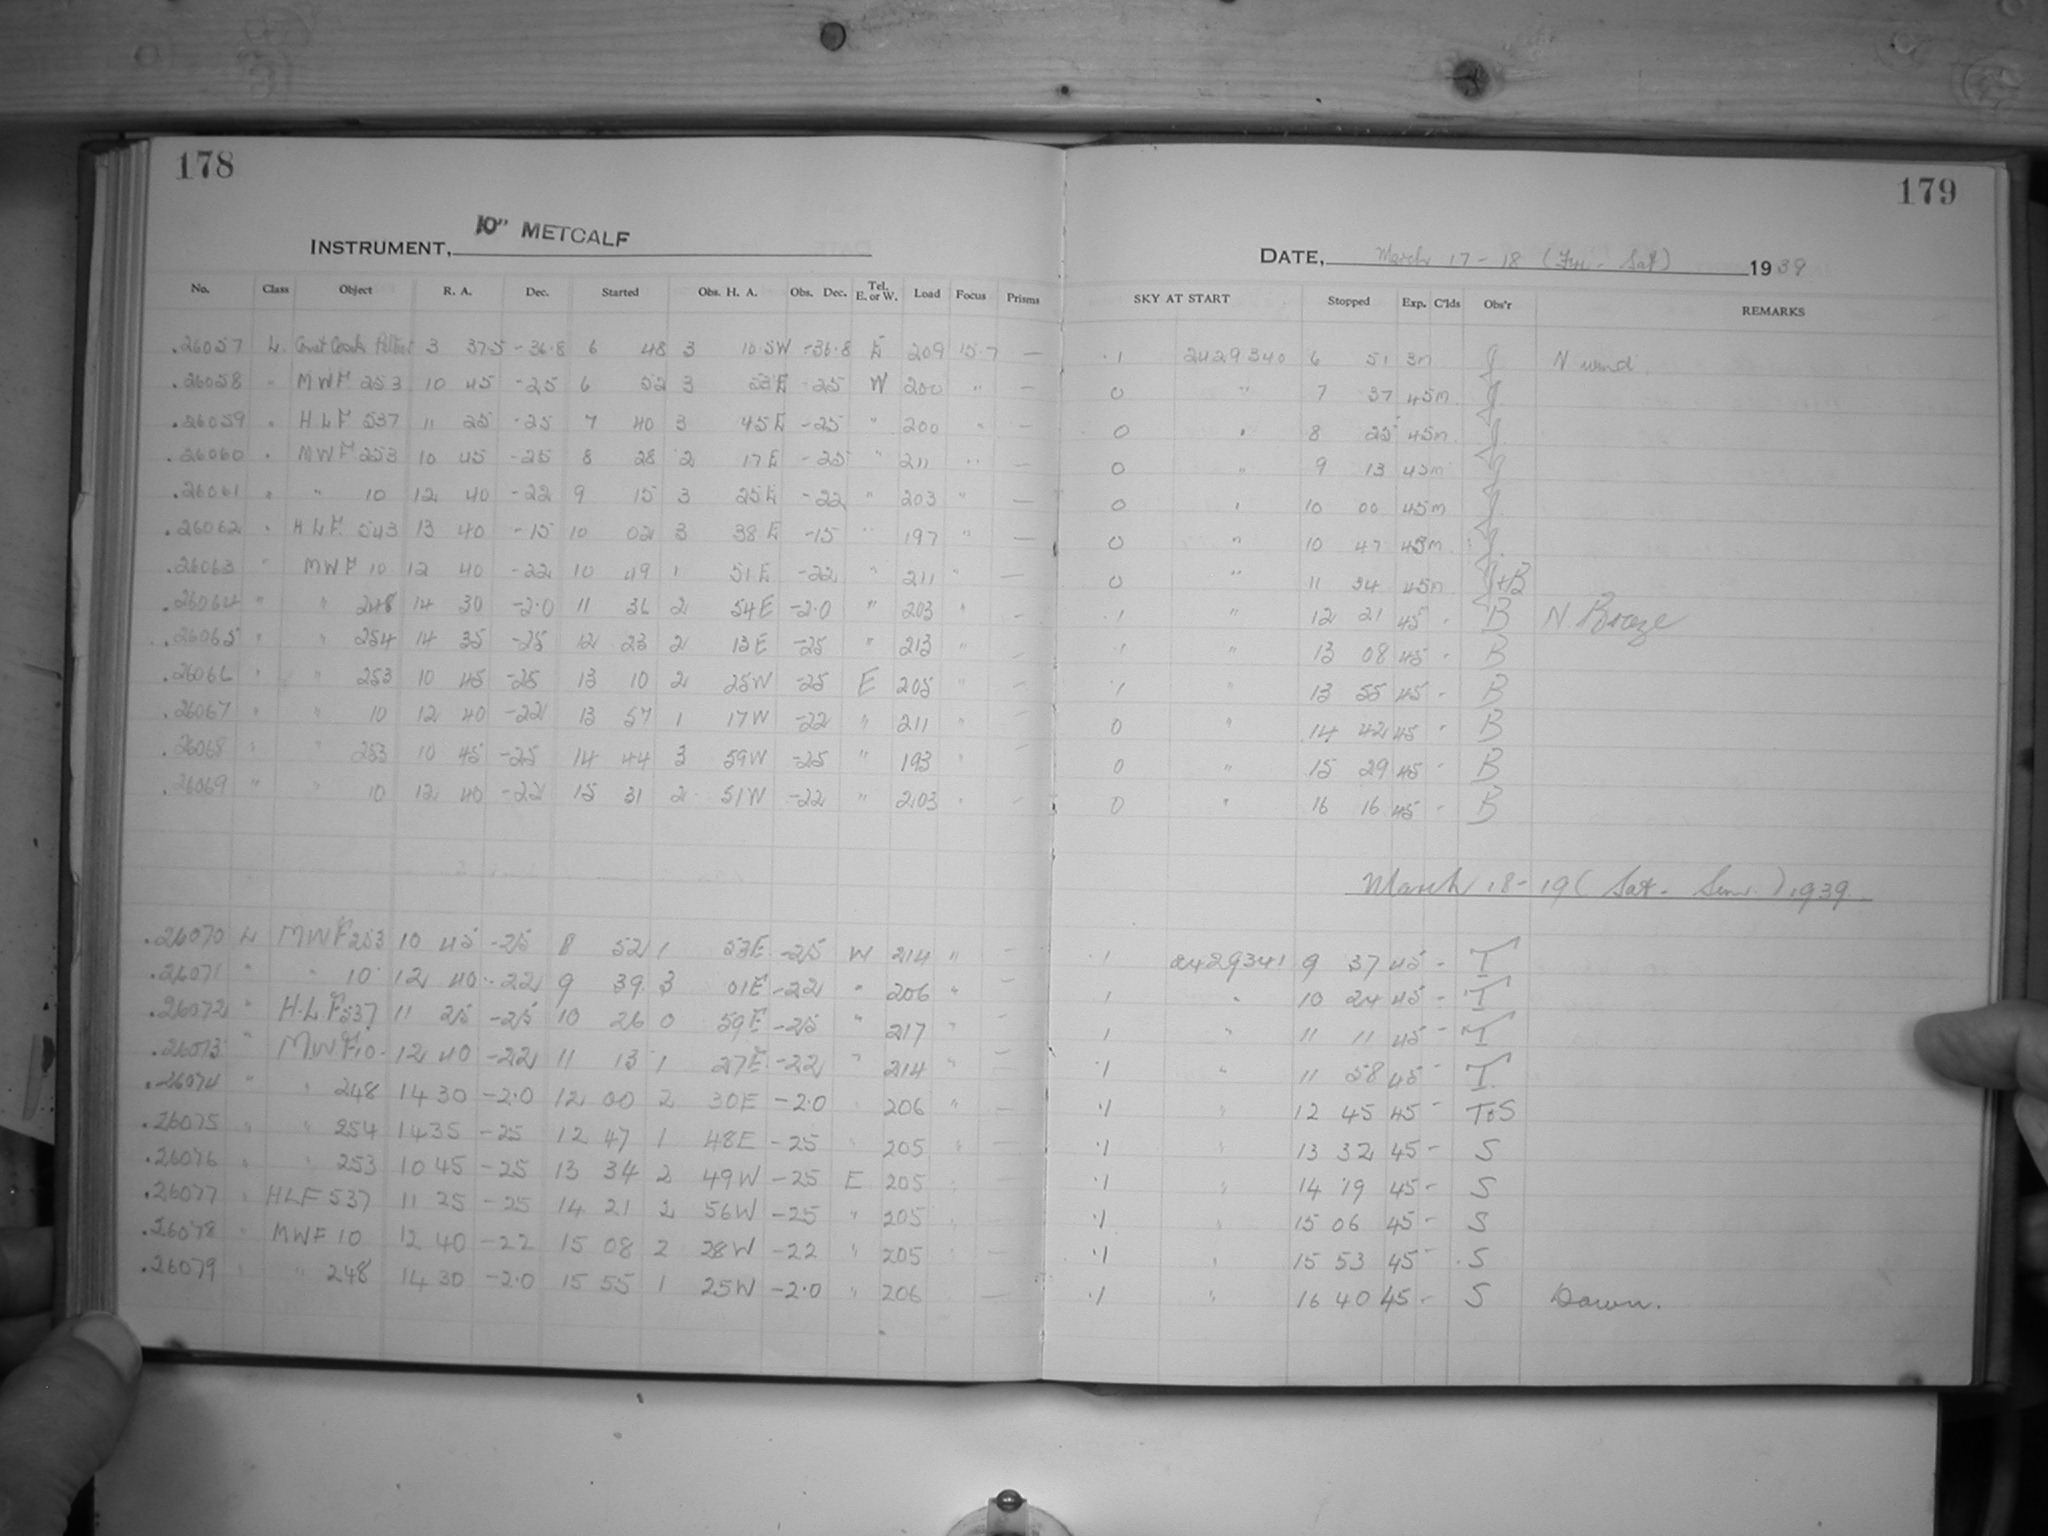 178
179
10" METCALF
INSTRUMENT,
DATE, March 17 - 18 (Fri. - Sat) 1939
No. Class Object R. A. Dec. Started Obs. H. A. Obs. Dec. Tel. E. or W. Load Focus Prisms SKY AT START Stopped Exp. C'lds Obs'r REMARKS
.26057 L. 3 37.5 -36.8 6 48 3 10.5W -36.8 E 209 15.7 — .1 2429340 6 51 3m J N wind
.26058 " MWF 253 10 45 -25 6 52 3 53E -25 W 200 " — 0 " 7 37 45m J
.26059 " HLF 537 11 25 -25 7 40 3 45E -25 " 200 " — 0 " 8 25 45m J
.26060 " MWF 253 10 45 -25 8 28 2 17E -25 " 211 " — 0 " 9 13 45m J
.26061 " " 10 12 40 -22 9 15 3 25E -22 " 203 " — 0 " 10 00 45m J
.26062 " HLF 543 13 40 -15 10 02 3 38E -15 " 197 " — 0 " 10 47 45m J
.26063 " MWF 10 12 40 -22 10 49 1 51E -22 " 211 " — 0 " 11 34 45m J+B
.26064 " " 248 14 30 -2.0 11 36 2 54E -2.0 " 203 " — .1 " 12 21 45 - B N. Breeze
.26065 " " 254 14 35 -25 12 23 2 13E -25 " 213 " — .1 " 13 08 45 - B
.26066 " " 253 10 45 -25 13 10 2 25W -25 E 205 " — .1 " 13 55 45 - B
.26067 " " 10 12 40 -22 13 57 1 17W -22 " 211 " — 0 " 14 42 45 - B
.26068 " " 253 10 45 -25 14 44 3 59W -25 " 193 " — 0 " 15 29 45 - B
.26069 " " 10 12 40 -22 15 31 2 51W -22 " 203 " — 0 " 16 16 45 - B
March 18-19 (Sat - Sun.) 1939.
.26070 L MWF 253 10 45 -25 8 52 1 53E -25 W 214 " — .1 2429341 9 37 45 - T
.26071 " " 10 12 40 -22 9 39 3 01E -22 " 206 " .1 " 10 24 45 - T
.26072 " H.L.F 537 11 25 -25 10 26 0 59E -25 " 217 " — .1 " 11 11 45 - T
.26073 " MWF 10 12 40 -22 11 13 1 27E -22 " 214 " — .1 " 11 58 45 - T
.26074 " " 248 14 30 -2.0 12 00 2 30E -2.0 " 206 " — .1 " 12 45 45 - T&S
.26075 " " 254 14 35 -25 12 47 1 48E -25 " 205 " — .1 " 13 32 45 - S
.26076 " " 253 10 45 -25 13 34 2 49W -25 E 205 " — .1 " 14 19 45 - S
.26077 " HLF 537 11 25 -25 14 21 2 56W -25 " 205 " — .1 " 15 06 45 - S
.26078 " MWF 10 12 40 -22 15 08 2 28W -22 " 205 " — .1 " 15 53 45 - S
.26079 " " 248 14 30 -2.0 15 55 1 25W -2.0 " 206 " — .1 " 16 40 45 - S Dawn.